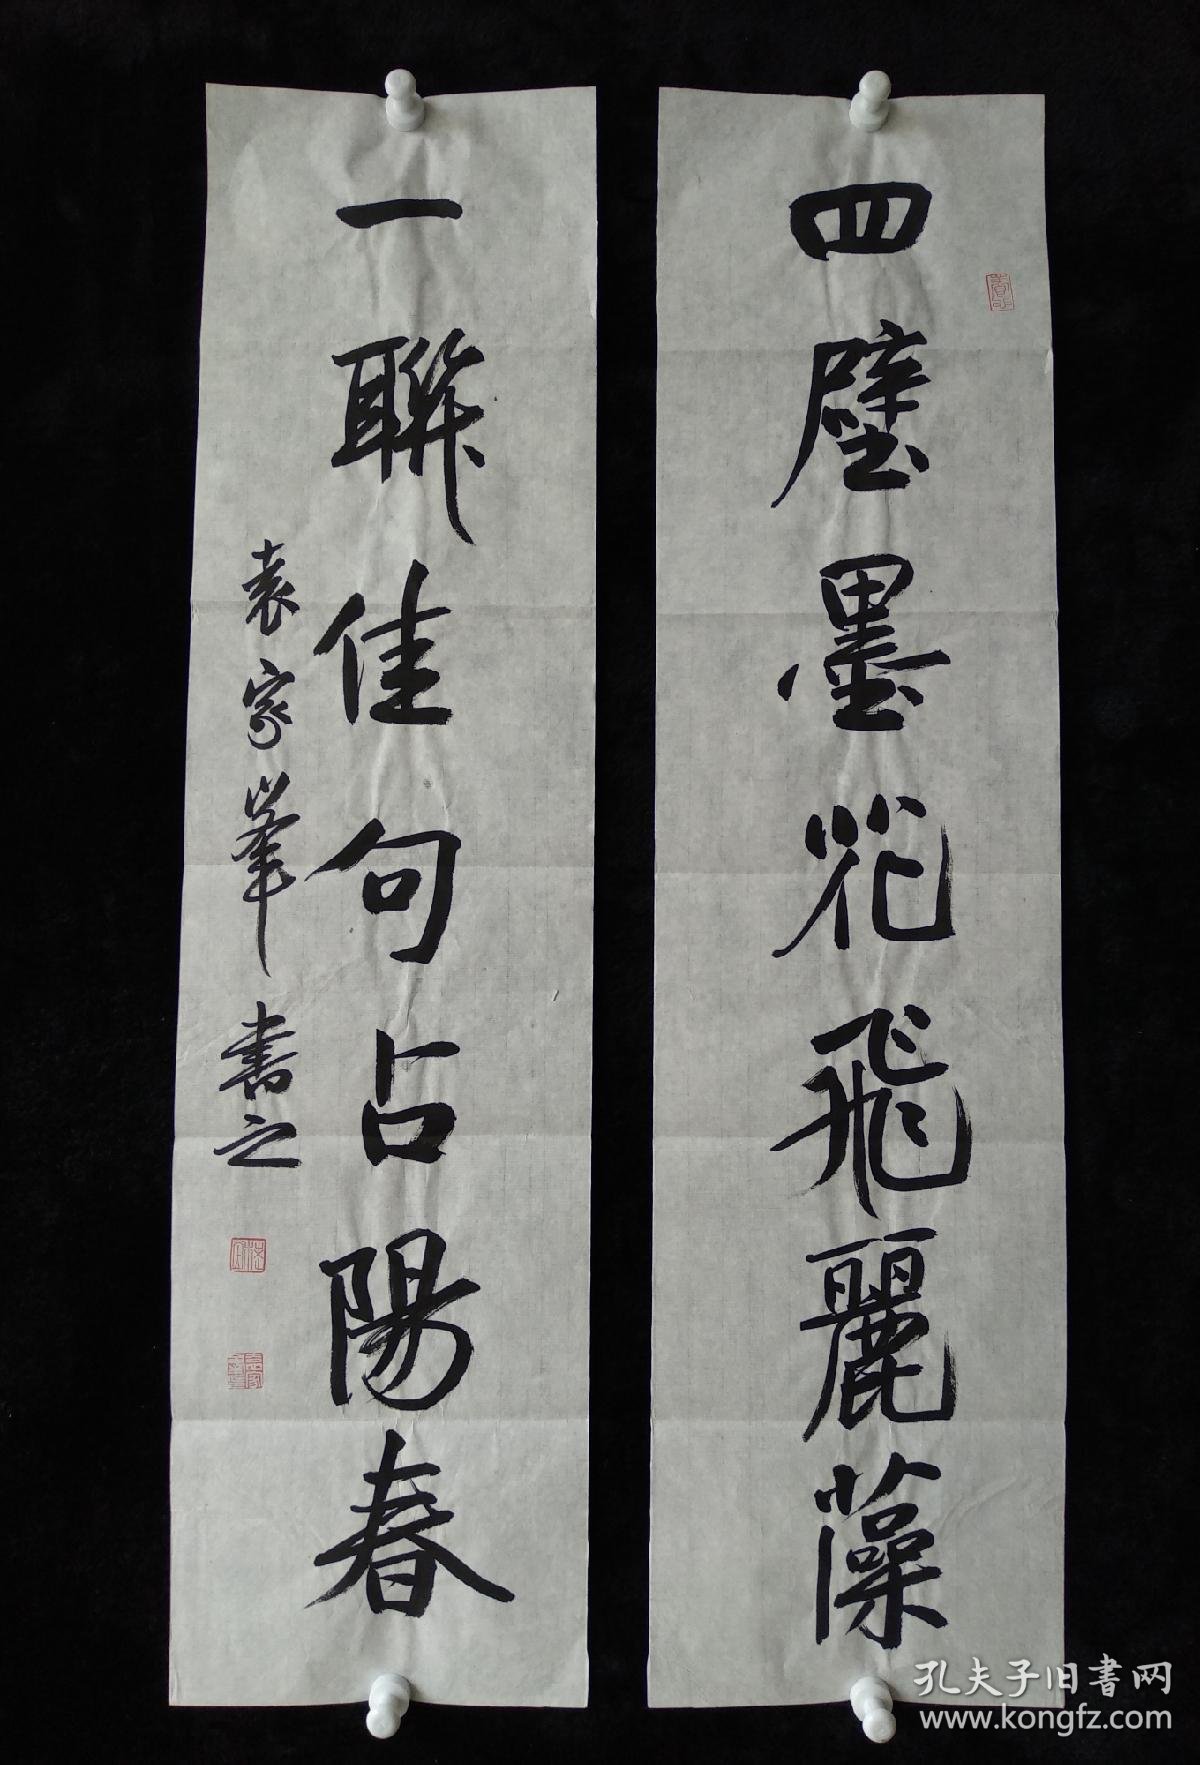 四壁墨花飛麗藻
一聯佳句占陽春
袁家峯書之
孔夫子旧書网
www.kongfz.com